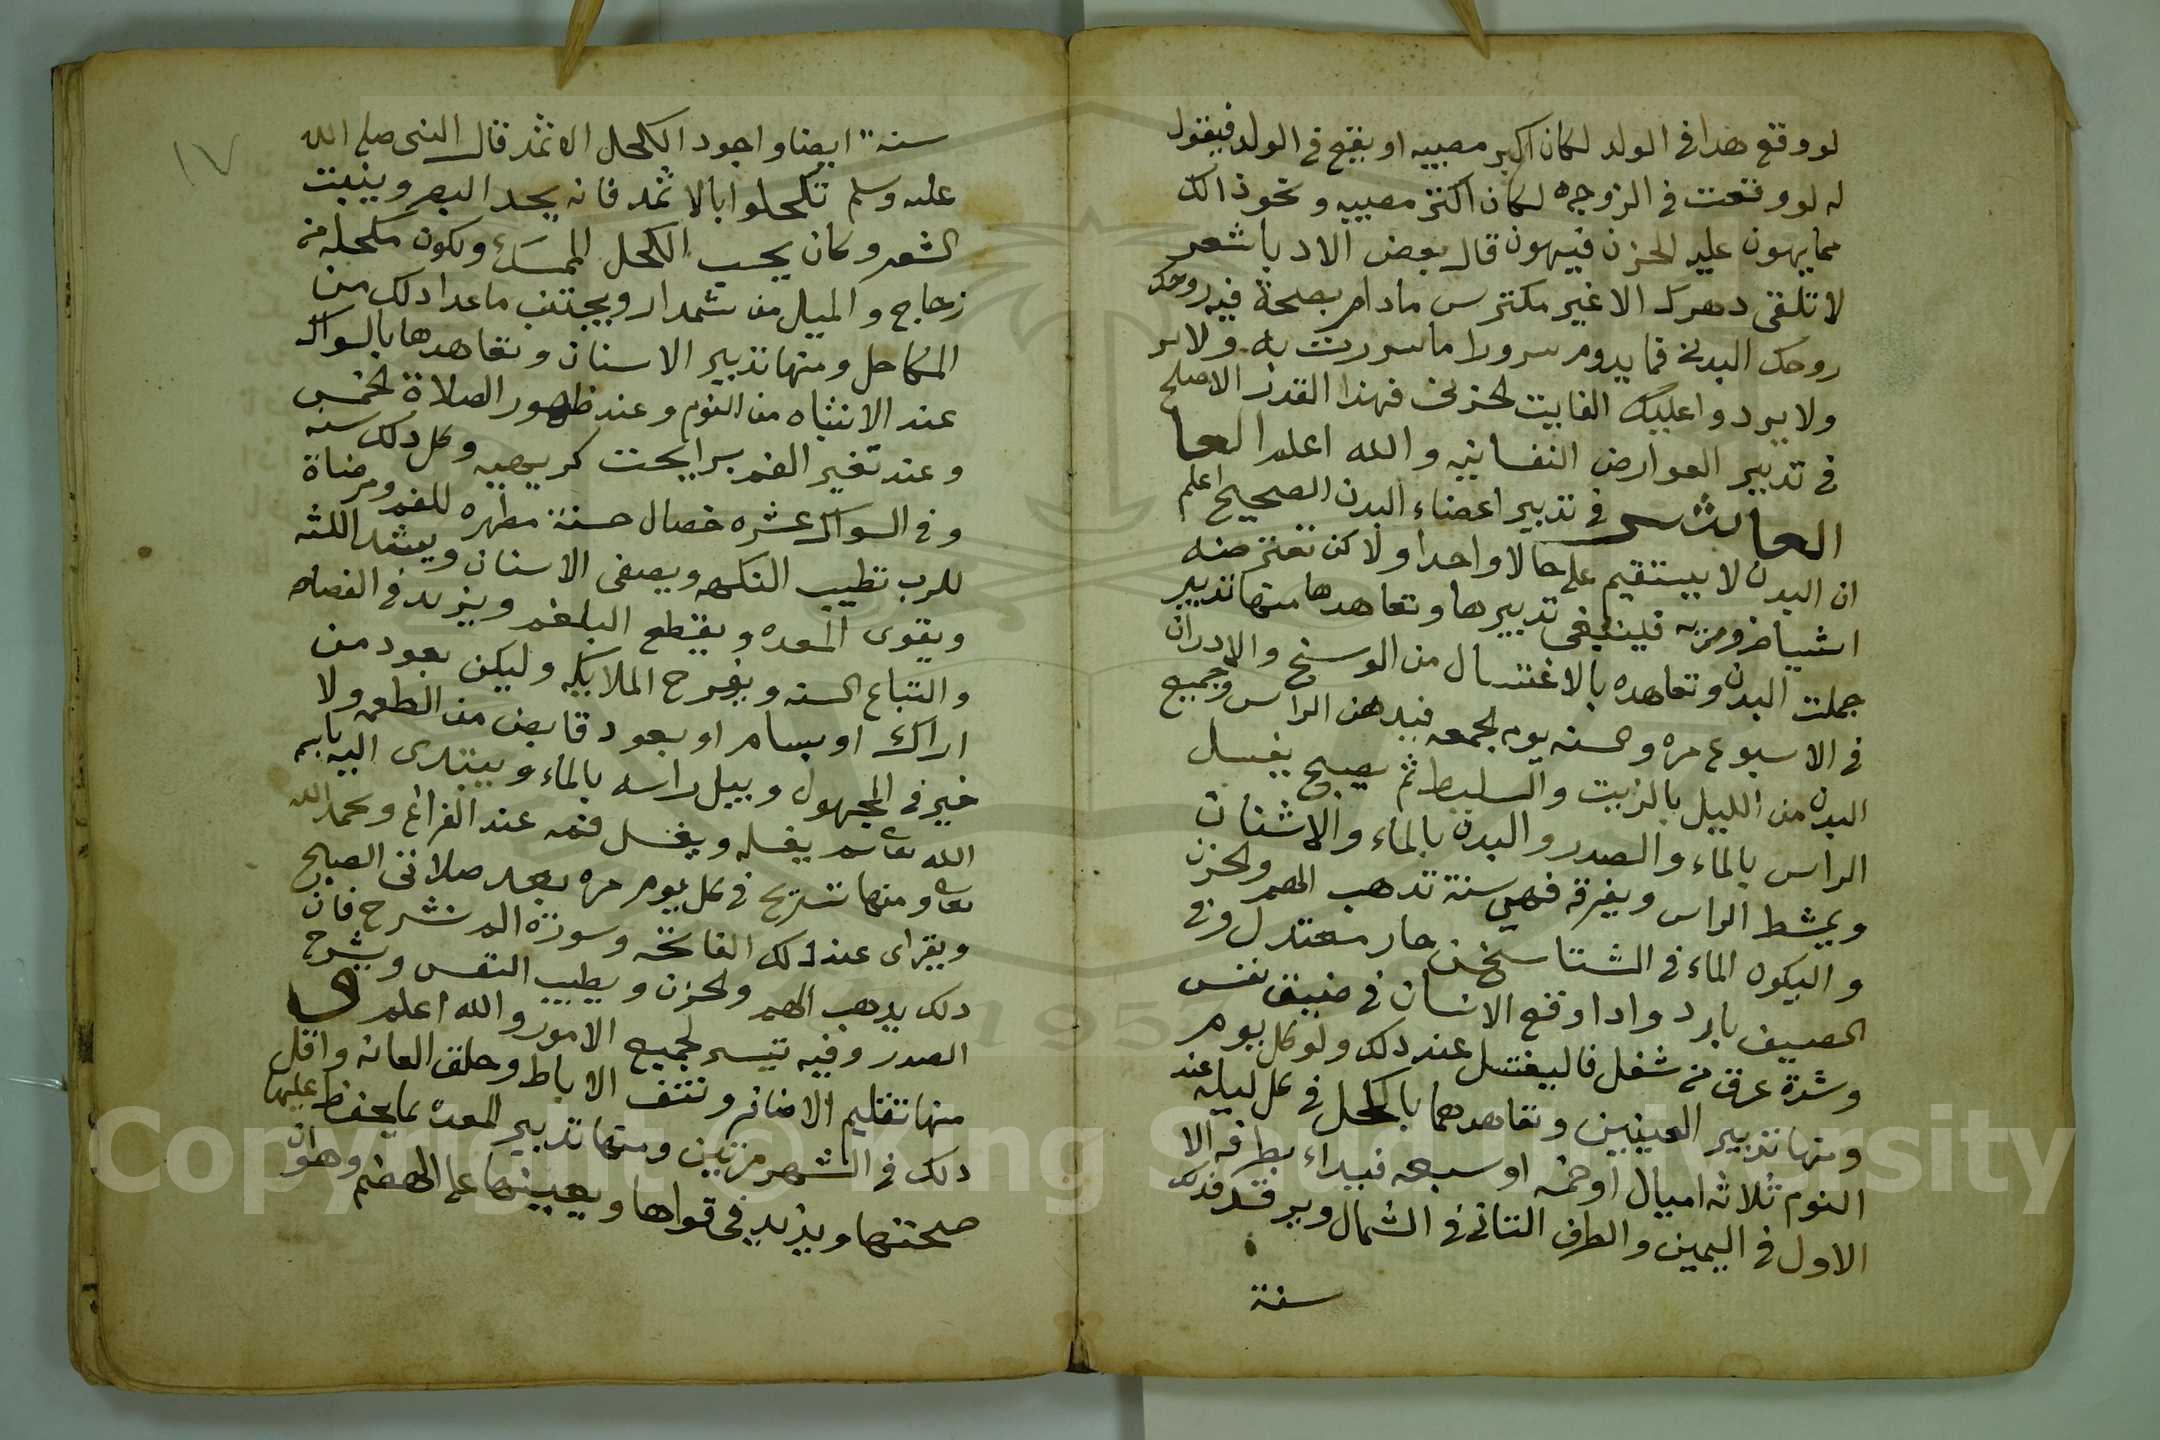 لو وقع هذا في الولد لكان اكبر مصيبه او يقع في الولد فيقول
له لو وقعت في الزوجه لكان اكثر مصيبه ونحو ذالك
مما يهون عليه الحزن فيهون قال بعض الادبا شعر
لا تلقى دهرك الا غير مكترس مادام بصحة فيه روحك
روحك البدن فما يدوم سرورا ما سررت به ولا ير
ولا يرد واعليك الفايت الحزن فهذا القدر الاصلح
في تدبير العوارض النفسانيه والله اعلم العا
العاشر في تدبير اعضاء البدن الصحيح اعلم
ان البدن لا يستقيم على حالا واحدا ولاكن تعتر منه
اشيا ضرورىه فينبغي تدبيرها وتعاهدها منها تدبير
جملت البدن وتعاهده بالاغتسال من الوسخ والادران
في الاسبوع مره والسنه يوم الجمعه فيدهن الراس وجميع
البدن من الليل بالزيت والسليط ثم يصبح يغسل
الراس بالماء والصدر والبدن بالماء والاشنان
ويمشط الراس ويفرقه فهي سنة تذهب الهم والحزن
واليكون الماء في الشتا سخن حار معتدل وفي
الصييف بارد واذا وقع الانسان في ضيق نفس
وشدة عرق من شغل فاليغتسل عند ذلك ولو كل يوم
ومنها تدبير العينين وتعاهدهما بالكحل في كل ليله عند
النوم ثلاثه اميال او خمسه او سبعه فيبداء بطرفه الا
الاول في اليمين والطرف الثاني في الشمال ويرقد فذلك
سنة
١٧
سنة ايضا واجود الكحل الاثمد قال النبي صلى الله
عليه وسلم تكحلوا بالاثمد فانه يحد البصر وينبت
الشعر وكان يحب الكحل الممسك وتكون مكحله من
زجاج والميل من ويجتنب ماعدا ذلك من
المكاحل ومنها تدبير الاسنان وتعاهدها بالسواك
عند الانتباه من النوم وعند ظهور الصلاة الخمس
وعند تغير الفم برايحت كريهيه وكل ذلك سنه
وفي السواك عشره خصال حسنة مطهره للفم ومرضاة
للرب تطيب النكهه ويصفى الاسنان ويشد اللثه
ويقوى المعده ويقطع البلغم ويزيد في الفصاحه
والتباع السنه ويفرح الملايكه وليكن بعود من
اراك او بسام او بعود قابض من الطعم ولا
خير في المجهول ويبل راسه بالماء ويبتدى اليه باسم
الله تعالى ثم يغسله ويغسل فمه عند الفراغ ويحمد الله
تعالى ومنها تسريح في كل يوم مره بعد صلاتى الصبح
ويقراى عند ذلك الفاتحه وسورة الم نشرح فان
ذلك يذهب الهم والحزن ويطيب النفس ويشرح
الصدر وفيه تيسر لجميع الامور والله اعلم
منها تقليم الاضافر ونتف الاباط وحلق العانه واقل
ذلك في الشهر مرتين ومنها تدبير المعده بما يحفظ عليها
صحتها ويزيد في قواها ويعينها على الهضم وهو ان
Copyright © King Saud University
1957